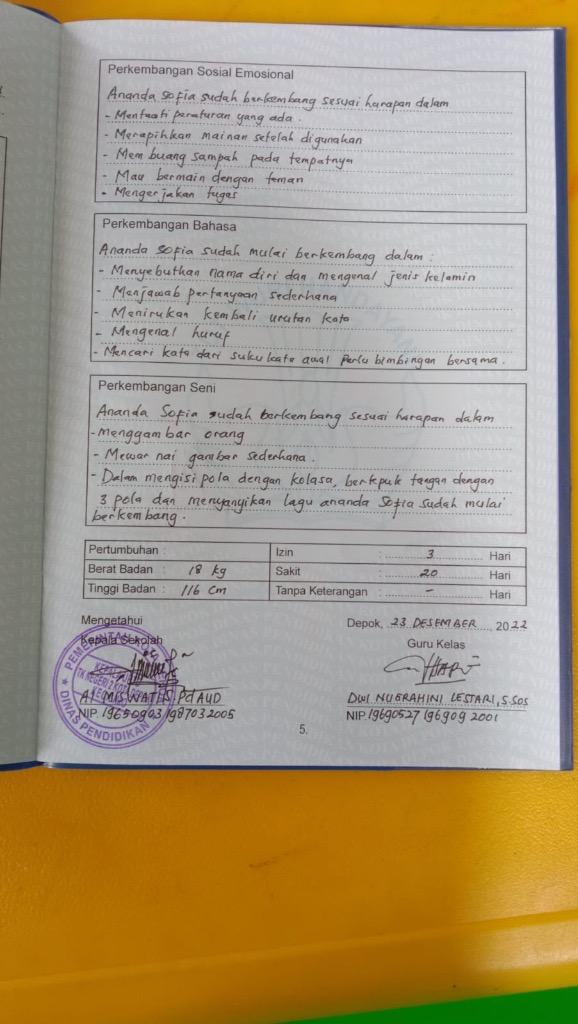 Perkembangan Sosial Emosional
Ananda Sofia sudah berkembang sesuai harapan dalam
- Mentaati peraturan yang ada.
- Merapihkan mainan setelah digunakan
- Mem buang sampah pada tempatnya
- Mau bermain dengan teman
- Mengerjakan tugas
Perkembangan Bahasa
Ananda Sofia sudah mulai berkembang dalam :
- Menyebutkan nama diri dan mengenal jenis kelamin
- Menjawab pertanyaan sederhana
- Menirukan kembali urutan kata
- Mengenal huruf
- Mencari kata dari suku kata awal perlu bimbingan bersama.
Perkembangan Seni
Ananda Sofia sudah berkembang sesuai harapan dalam
- Menggambar orang
- Mewar nai gambar sederhana.
- Dalam mengisi pola dengan kolase, bertepuk tangan dengan
3 pola dan menyanyikan lagu ananda Sofia sudah mulai
berkembang.
Pertumbuhan :
Izin : 3 Hari
Berat Badan : 18 kg
Sakit : 20 Hari
Tinggi Badan : 116 Cm
Tanpa Keterangan : - Hari
Mengetahui
Depok, 23 DESEMBER, 2022
Kepala Sekolah
Guru Kelas
PEMERINTAH
TK NEGERI
DINAS PENDIDIKAN
MISWATI S.Pd AUD
DWI NUGRAHINI LESTARI, S.SOS
NIP. 19650903 198703 2005
NIP. 19690527 196909 2001
5.